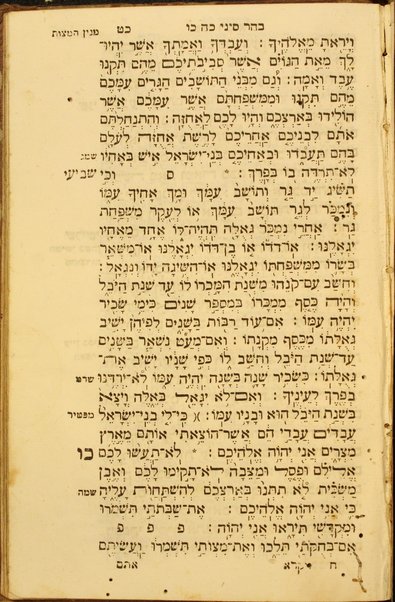 בהר סיני כה כו
כט
מנין המצות
וְיָרֵאתָ מֵאֱלֹהֶיךָ : וְעַבְדְּךָ וַאֲמָתְךָ אֲשֶׁר יִהְיוּ־
לָךְ מֵאֵת הַגּוֹיִם אֲשֶׁר סְבִיבֹתֵיכֶם מֵהֶם תִּקְנוּ
עֶבֶד וְאָמָה : וְגַם מִבְּנֵי הַתּוֹשָׁבִים הַגָּרִים עִמָּכֶם
מֵהֶם תִּקְנוּ וּמִמִּשְׁפַּחְתָּם אֲשֶׁר עִמָּכֶם אֲשֶׁר
הוֹלִידוּ בְּאַרְצְכֶם וְהָיוּ לָכֶם לַאֲחֻזָּה : וְהִתְנַחַלְתֶּם
אֹתָם לִבְנֵיכֶם אַחֲרֵיכֶם לָרֶשֶׁת אֲחֻזָּה לְעֹלָם
בָּהֶם תַּעֲבֹדוּ וּבְאַחֵיכֶם בְּנֵי־יִשְׂרָאֵל אִישׁ בְּאָחִיו שמג
לֹא־תִרְדֶּה בוֹ בְּפָרֶךְ : ס וְכִי שביעי
תַשִּׂיג יַד גֵּר וְתוֹשָׁב עִמָּךְ וּמָךְ אָחִיךָ עִמּוֹ
וְנִמְכַּר לְגֵר תּוֹשָׁב עִמָּךְ אוֹ לְעֵקֶר מִשְׁפַּחַת
גֵּר : אַחֲרֵי נִמְכַּר גְּאֻלָּה תִּהְיֶה־לּוֹ אֶחָד מֵאֶחָיו
יִגְאָלֶנּוּ : אוֹ־דֹדוֹ אוֹ בֶן־דֹּדוֹ יִגְאָלֶנּוּ אוֹ־מִשְּׁאֵר
בְּשָׂרוֹ מִמִּשְׁפַּחְתּוֹ יִגְאָלֶנּוּ אוֹ־הִשִּׂיגָה יָדוֹ וְנִגְאָל :
וְחִשַּׁב עִם־קֹנֵהוּ מִשְּׁנַת הִמָּכְרוֹ לוֹ עַד שְׁנַת הַיֹּבֵל
וְהָיָה כֶּסֶף מִמְכָּרוֹ בְּמִסְפַּר שָׁנִים כִּימֵי שָׂכִיר
יִהְיֶה עִמּוֹ : אִם־עוֹד רַבּוֹת בַּשָּׁנִים לְפִיהֶן יָשִׁיב
גְּאֻלָּתוֹ מִכֶּסֶף מִקְנָתוֹ : וְאִם־מְעַט נִשְׁאַר בַּשָּׁנִים
עַד־שְׁנַת הַיֹּבֵל וְחִשַּׁב לוֹ כְּפִי שָׁנָיו יָשִׁיב אֶת־
גְּאֻלָּתוֹ : כִּשְׂכִיר שָׁנָה בְּשָׁנָה יִהְיֶה עִמּוֹ לֹא־יִרְדֶּנּוּ
בְּפֶרֶךְ לְעֵינֶיךָ : וְאִם־לֹא יִגָּאֵל בְּאֵלֶּה וְיָצָא
בִּשְׁנַת הַיֹּבֵל הוּא וּבָנָיו עִמּוֹ : כִּי־לִי בְנֵי־יִשְׂרָאֵל מפטיר
עֲבָדִים עֲבָדַי הֵם אֲשֶׁר־הוֹצֵאתִי אוֹתָם מֵאֶרֶץ
מִצְרָיִם אֲנִי יְהוָה אֱלֹהֵיכֶם : לֹא־תַעֲשׂוּ לָכֶם כו
אֱלִילִם וּפֶסֶל וּמַצֵּבָה לֹא־תָקִימוּ לָכֶם וְאֶבֶן
מַשְׂכִּית לֹא תִתְּנוּ בְּאַרְצְכֶם לְהִשְׁתַּחֲוֹת עָלֶיהָ שמה
כִּי אֲנִי יְהוָה אֱלֹהֵיכֶם : אֶת־שַׁבְּתֹתַי תִּשְׁמֹרוּ
וּמִקְדָּשִׁי תִּירָאוּ אֲנִי יְהוָה : פ פ פ
אִם־בְּחֻקֹּתַי תֵּלֵכוּ וְאֶת־מִצְוֹתַי תִּשְׁמְרוּ וַעֲשִׂיתֶם
ח ויקרא אתם